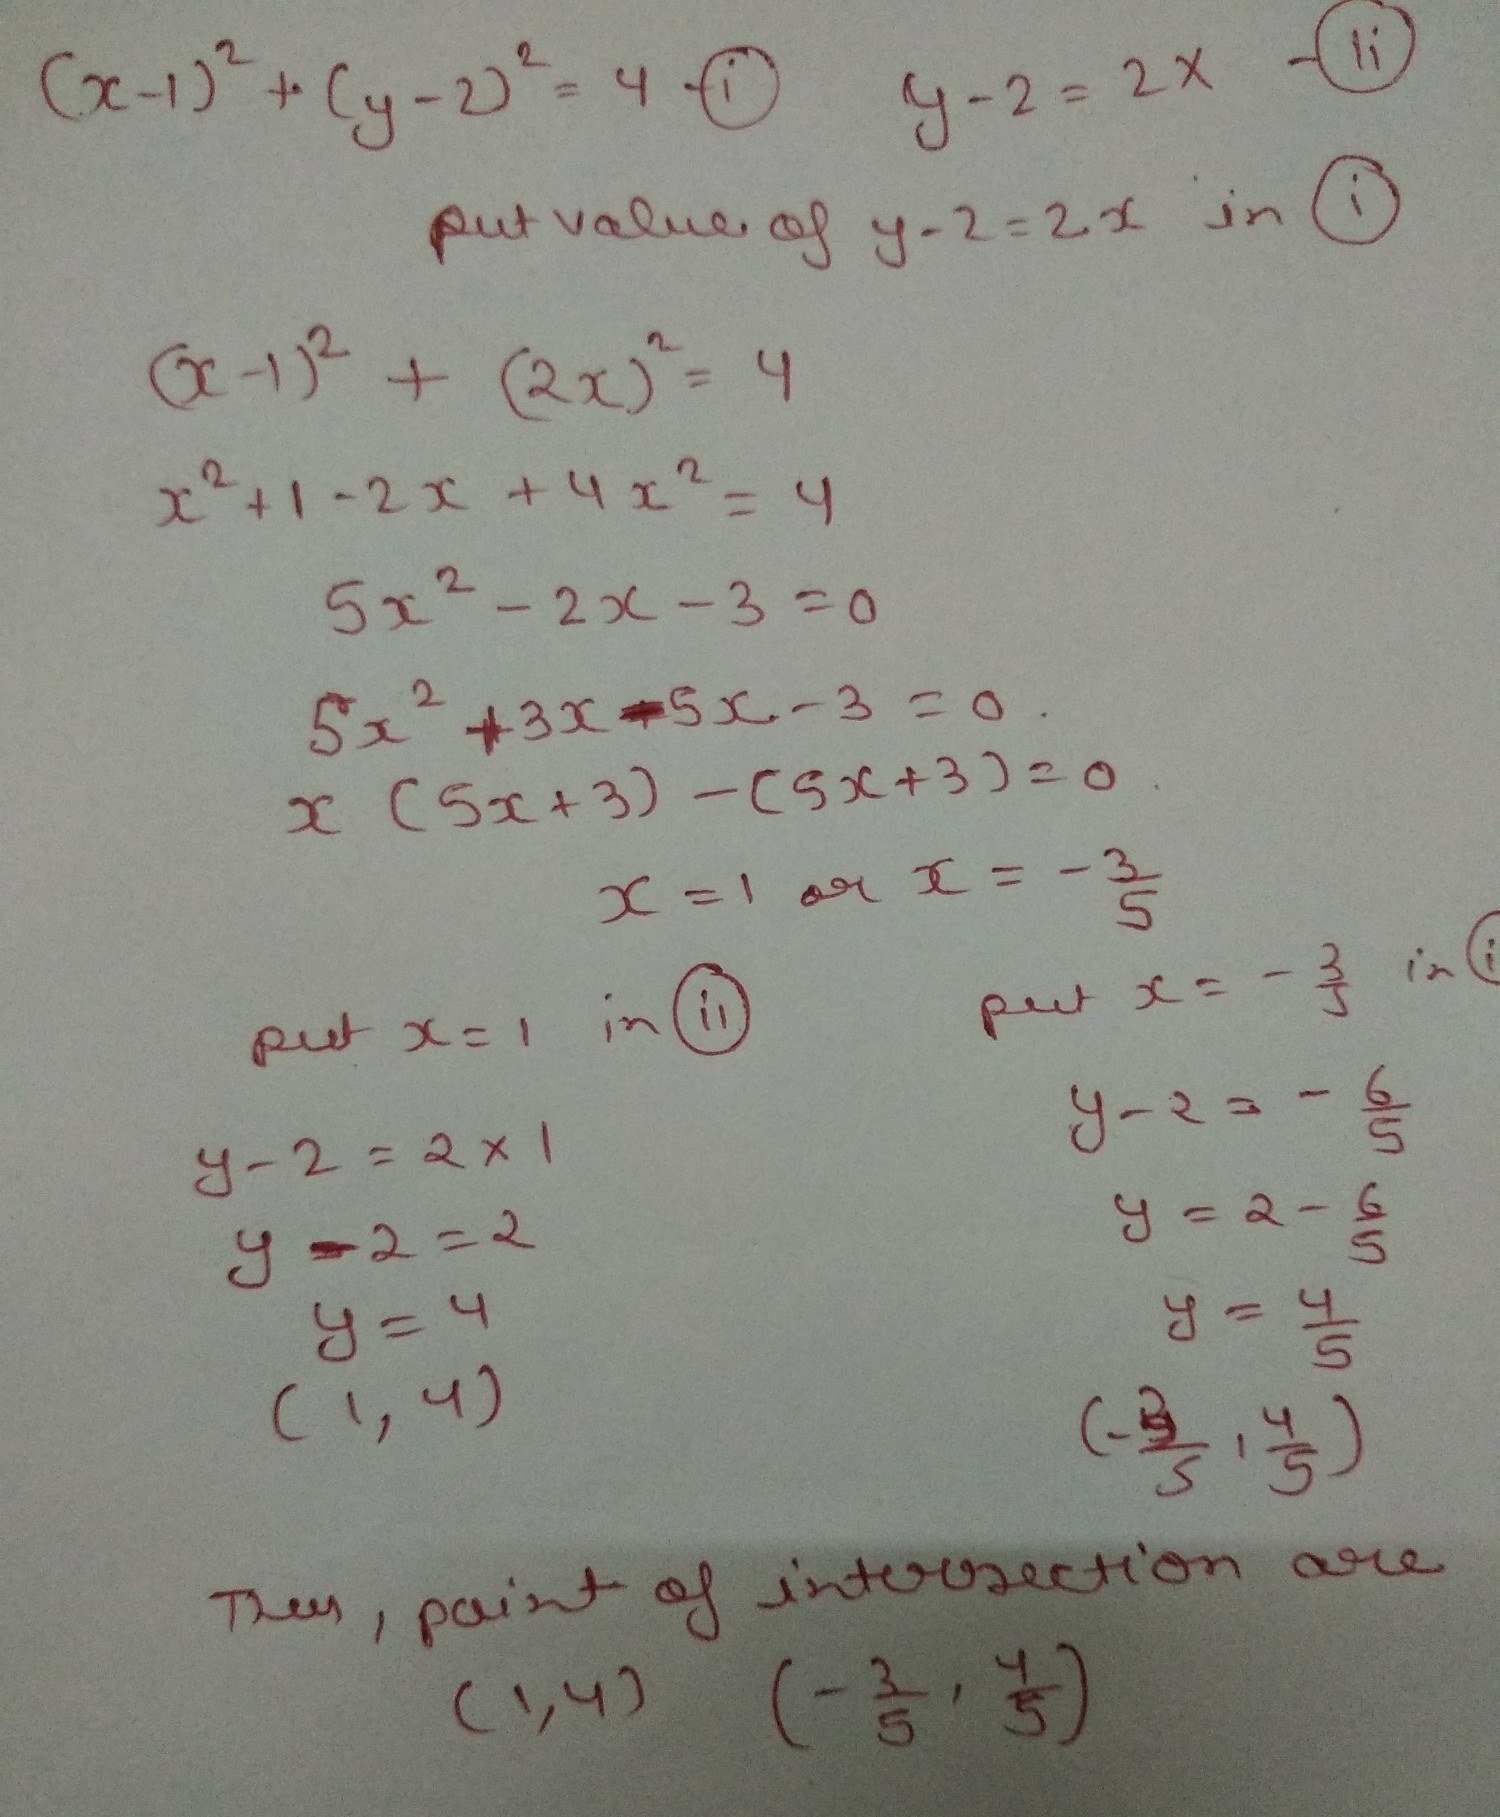 (x-1)² + (y-2)² = 4 -(i) y-2 = 2x -(ii)
put value of y-2=2x in (i)
(x-1)² + (2x)² = 4
x²+1-2x +4x² = 4
5x² - 2x - 3 = 0
5x² +3x -5x - 3 = 0.
x (5x+3) -(5x+3) = 0.
x = 1 or x = -3/5
put x = 1 in (ii)
y-2 = 2×1
y -2 = 2
y = 4
(1, 4)
put x = -3/5 in
y-2 = - 6/5
y = 2 - 6/5
y = 4/5
(-3/5, 4/5)
Thus, point of intersection are
(1,4) (-3/5, 4/5)